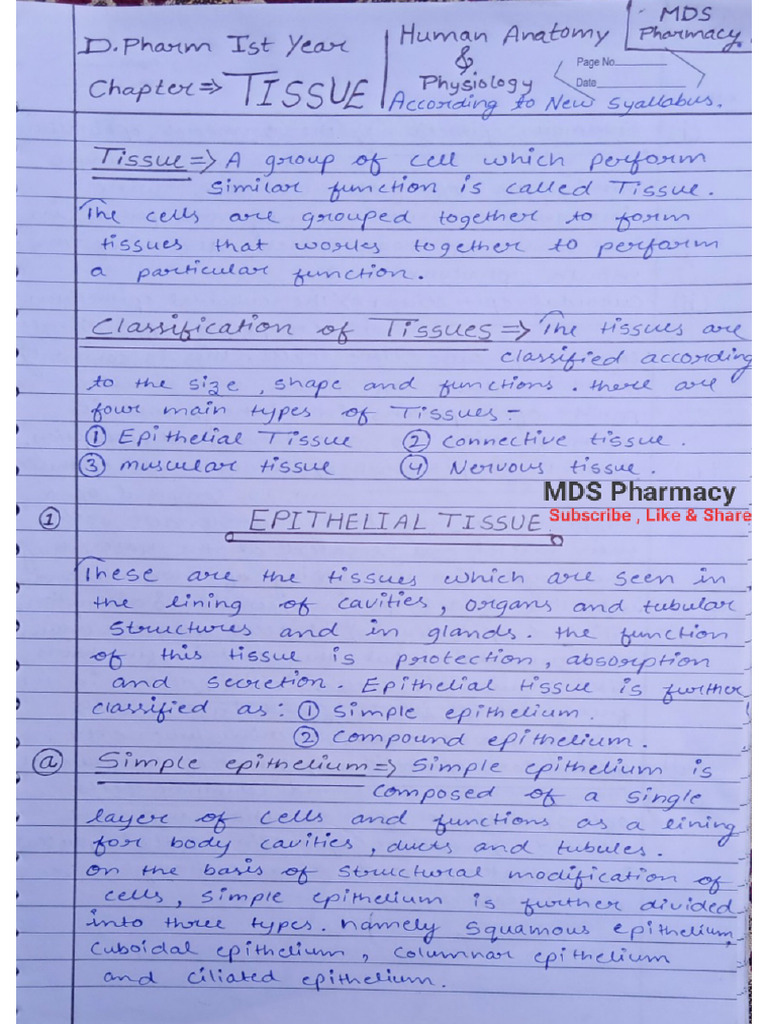 D.Pharm Ist Year
Chapter => TISSUE
Human Anatomy
&
Physiology
According to New Syallabus.
MDS
Pharmacy
Page No.
Date
Tissue => A group of cell which perform
similar function is called Tissue.
The cells are grouped together to form
tissues that works together to perform
a particular function.
Classification of Tissues => The tissues are
classified according
to the size, shape and functions. there are
four main types of Tissues-
① Epithelial Tissue ② connective tissue.
③ muscular tissue ④ Nervous tissue.
MDS Pharmacy
Subscribe , Like & Share
① EPITHELIAL TISSUE
These are the tissues which are seen in
the lining of cavities, organs and tubular
structures and in glands. the function
of this tissue is protection, absorption
and secretion. Epithelial tissue is further
classified as: ① simple epithelium.
② compound epithelium.
ⓐ Simple epithelium => Simple epithelium is
composed of a single
layer of cells and functions as a lining
for body cavities, ducts and tubules.
on the basis of structural modification of
cells, simple epithelium is further divided
into three types. namely squamous epithelium,
cuboidal epithelium, columnar epithelium
and ciliated epithelium.